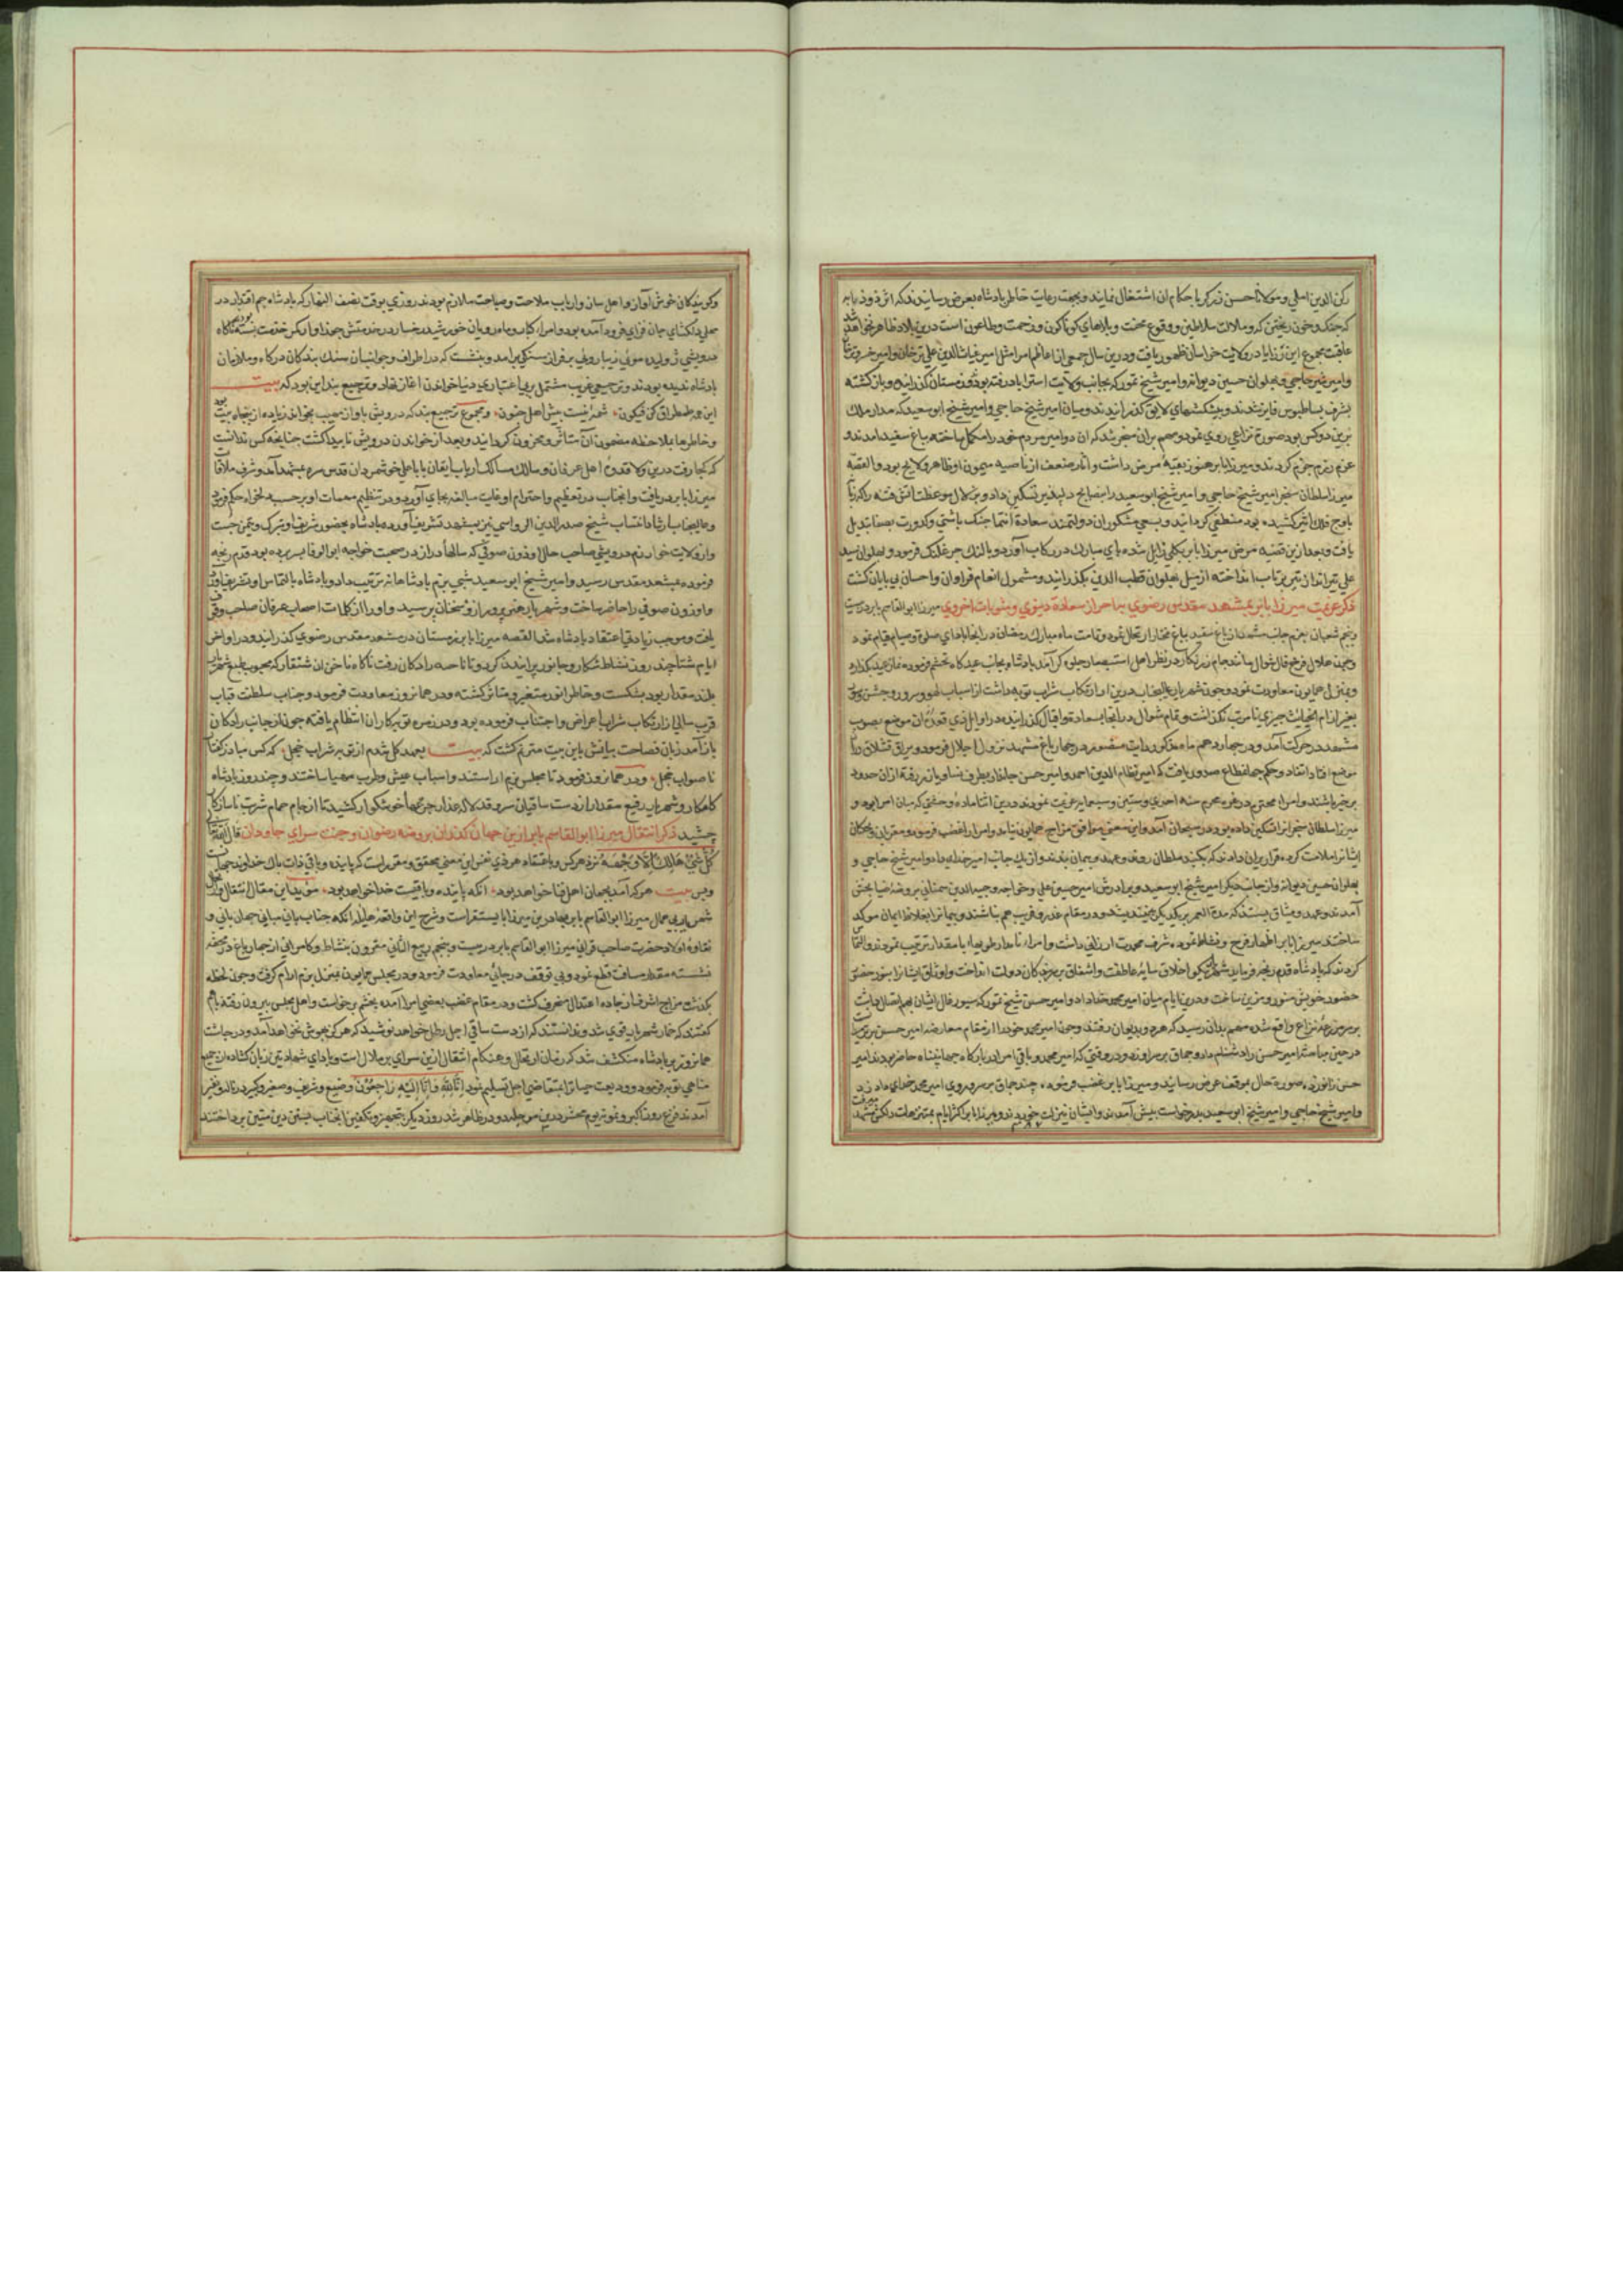 رکن الدین املی و مولانا حسن زیرکریا باحکام ان اشتغال نمایند و بجهت رعایت خاطر پادشاه بعرض رسانیدند که اثر ذو ذوابه
که جنک و خون ریختن کروه و ملالت سلاطین و وقوع محنت و بلاهای کوناکون و زحمت وطاعون است درین بلاد ظاهر نخواهد شد
عاقبت مجموع این قضایا در ولایت خراسان ظهور یافت و درین سال جمعی از اعاظم امرا مثل امیر غیاث الدین علی ترخان و امیر
و امیر شیر حاجی و پهلوان حسین دیوانه و امیر شیخ تمور که بجانب ولایت استراباد رفته بودند زمستان کذرانیده و باز کشته
بشرف بساطبوس فایز شدند و پیشکشهای لایق کذرانیدند و میان امیر شیخ حاجی و امیر شیخ ابو سعید که مدار ملک
برین دو کس بود صورة نزاعی روی نمود و مهم بران منجر شد که ان دو امیر مردم خود را مکمل ساخته بباغ سفید امدند و
عزم رزم جزم کردند و میرزا بابر هنوز بقیهٔ مرض داشت و اثار ضعف از ناصیه میمون او ظاهر و لایح بود و القصه
میرزا سلطان سنجر امیر شیخ حاجی و امیر شیخ ابو سعید را بنصایح دلپذیر تسکین داد و بزلال موعظت اتش فتنه را که زبانه
باوج فلک اثیر کشیده بود منطفی کردانید و بسعی مشکور ان دولتمند سعادة انتما جنک باشتی و کدورت بصفا تبدیل
یافت و بعد ازین قضیه مرض میرزا بابر بکلی زایل شده پای مبارک در رکاب آورد و بالنک جرغلنک فرمود و پهلوان سید
علی تیرانداز تیر پرتاب انداخته از میل پهلوان قطب الدین بکذرانید و مشمول انعام فراوان و احسان بی پایان کشت
ذکر عزیمت میرزا بابر بمشهد مقدس رضوی بنا بر احراز سعادة دنیوی و مثوبات اخروی میرزا ابو القاسم بابر در بیست
و پنجم شعبان بعزم جانب مشهد از باغ سفید بباغ مختار ارتحال نمود و تمامت ماه مبارک رمضان در انجا باداي صلوة و صیام قیام نمود
و چون هلال فرخ فال شوال مانند جام زرنکار در نظر اهل استبصار جلوه کر آمد پادشاه بجانب عیدکاه تجشم فرموده نماز عید بکذارد
و بمنزل همایون معاودت نمود و چون شهریار عالیجناب درین ایام از ارتکاب شراب توبه داشت از اسباب لهو و سرور و جشن و سور
بغیر از ام الخبایث چیزی نامرتب نکذاشت و تمام شوال در انجا بسعادت و اقبال کذرانیده در اوایل ذي قعده از ان موضع بصوب
مشهد در حرکت آمد و در چهاردهم ماه مذکور ذات در چهار باغ مشهد نزول اجلال فرمود و یراق قشلاق دران
موضع افتاد و حکم جهانمطاع صدور یافت که امیر نظام الدین احمد و امیر حسن جاندار بطرف نسا و یازر رفته از ان حدود
بر خبر باشند و امراء محترم در غره محرم سنه احدی و ستین و ثمانمایه عزیمت نمودند و درین اثنا مادهٔ وحشتی که میان امرا بود و
میرزا سلطان سنجر انرا تسکین داده بود در هیجان آمد و این معنی موافق مزاج همایون نیامد و امرا را غضب فرمود و مقربان و نیکان
ایشانرا ملامت کرده قرار بران دادند که پیش سلطان روند و عهد و پیمان بندند و از یک جانب امیر خدای داد و امیر شیخ حاجی و
پهلوان حسین دیوانه و از جانب دیکر امیر شیخ ابو سعید و برادرش امیر حسین علی و خواجه وجیه الدین سمنانی بروضهٔ
آمدند و عهد و میثاق ببستند که مدة العمر بر یکدیکر و در مقام غدر و فریب هم نباشند و پیمانرا بغلاظ ایمان موکد
ساختند میرزا بابر اظهار فرح و نشاط نموده شرف محبت ارزانی داشت و امراء نامدار طوبهاء بامقدار ترتیب نمودند و التماس
کردند که پادشاه قدم رنجه فرماید اخلاق سایهٔ عاطفت و اشفاق بر مفارق دولت انداخت و اوثاق ایشانرا بنور حضور
حضور خویش منور و مزین ساخت و درین ایام میان امیر محمد خداداد و امیر حسن شیخ تمور که سیورغال ایشان بهم اتصال داشت
بر سر مزرعهٔ نزاع واقع شده مهم بدان رسید که هر دو بدیوان رفتند و چون امیر محمد خود را از مقام معارضه امیر حسن برتر
در حین مباحثه امیر حسن را دشنام داد و چماق بر سر او زد و در وقتی که امیر محمد و باقی امرا در بارکاه جهانپناه حاضر بودند امیر
حسن زانو زده صورة حال بموقف عرض رسانید و میرزا بابر غضب فرموده چند چماق بر سر و روی امیر محمد خدای داد زد
و امیر شیخ حاجی و امیر شیخ ابو سعید بدرخواست پیش آمدند و ایشان نیز لت خوردند و میرزا بابر اکثر ایام بمتنزهات دلکش مشهد
و کویندکان خوش آواز و اهل ساز و ارباب ملاحت و صباحت ملازم بودند روزی بوقت نصف النهار که پادشاه جم اقتدار در
محلی دلکشای جان فزای فرود آمده بود و امراء کامیاب و ماه رویان خورشید رخسار در خدمتش چون جوزا کمر خدمت بسته ناکاه
درویشی ژولیده موی زیبا روی بر فراز سنکی برامد و بنشست که در اطراف و جوانب ان سنک بندکان درکاه و ملازمان
پادشاه بودند و ترجیعی غریب مشتمل بر بی اعتباری دنیا خواندن اغاز نهاد و ترجیع بند این بود که بیت
این چه طمطراق کن فیکون شمه نیست پیش اهل جنون و مجموع ترجیع بند که درویش باواز مهیب بخواند زیاده از پنجاه بیت بود
و خاطرها بملاحظه مضمون آن متاثر و محزون کردانید و بعد از خواندن درویش ناپیدا کشت چنانچه کس ندانست
که کجا رفت درین ولا قدوة اهل عرفان و سالک مسالک ارباب ایقان بابا علی خوشمردان قدس سره بمشهد آمد و شرف ملاقات
میرزا بابر دریافت و انجناب در تعظیم و احترام او غایت مبالغه بجای آورد و در تنظیم مهمات او بر حسب دلخواه حکم فرمود
و عالیجناب ارشاد انتساب شیخ صدر الدین الرواسی نیز بمشهد تشریف آورده پادشاه بحضور شریف او تبرک و تیمن جست
و از ولایت خوارزم درویشی صاحب حال اوزون صوفی که سالهاء دراز در صحبت خواجه ابو الوفا بسر برده بود قدم رنجه
فرموده بمشهد مقدس رسید و امیر شیخ ابو سعید شبی بزم پادشاهانه ترتیب داد و پادشاه بالتماس او تشریف
و اوزون صوفی را حاضر ساخت و شهریار هنر پرور از و سخنان پرسید و او را از کلمات اصحاب عرفان صاحب وقوف
یافت و موجب زیادتی اعتقاد پادشاه شد القصه میرزا بابر زمستان در مشهد مقدس رضوی کذرانید و در اواخر
ایام شتا چند روز نشاط شکار و جانور پرانیدن کرد و تا ناحیه رادکان رفت ناکاه ناخن ان شنقار که محبوب طبع شهریار
بلند مقدار بود بشکست و خاطر انور متغیر و متاثر کشته و در همان روز معاودت فرمود و جناب سلطنت قباب
قرب سالی از ارتکاب شراب اعراض و اجتناب فرموده بود و در زمره توبه کاران انتظام یافته چون از جانب رادکان
باز آمد زبان فصاحت بیانش باین بیت مترنم کشت که بیت بعهد کل شدم از توبه شراب خجل که کس مباد ز کردار
ناصواب خجل و در همان روز فرمود تا مجلس بزم اراستند و اسباب عیش و طرب مهیا ساختند و چند روز پادشاه
کامکار و شهریار رفیع مقدار از دست ساقیان سرو قد لاله عذار جرعهاء خوشکوار کشید تا از جام حمام شربت ناسازکار
چشید ذکر انتقال میرزا ابو القاسم بابر ازین جهان کذران بروضه رضوان و جنت سرای جاودان قال الله تعالی
کُلُّ شَيْءٍ هَالِكٌ اِلَّا وَجْهَهُ نزد هرکس و باعتقاد هر ذی نفس این معنی محقق و مقررست که پاینده و باقی ذات پاک خداوند جهانست
و بس بیت هر که آمد بجهان اهل فنا خواهد بود انکه پاینده و باقیست خدا خواهد بود موید این مقال انتقال
شمس بی زوال میرزا ابو القاسم بابر بهادر بن میرزا بایسنقرست و شرح این واقعهٔ هایله انکه جناب بانی مبانی جهان بانی و
نقاوهٔ اولاد حضرت صاحب قرانی میرزا ابو القاسم بابر در بیست و پنجم ربیع الثاني مقرون بنشاط و کامرانی از چهار باغ در محفه
نشسته مقدار مسافت قطع نمود و بی توقف در جایی معاودت فرمود و در مجلس همایون بمنزل بزم ارام کرفت و چون لحظه
بکذشت مزاج اشرف از جاده اعتدال منحرف کشت و در مقام غضب بعضی امرا آمده بخشم برخواست و اهل مجلس بیرون رفته باهم
کفتند که خمار شهریار قوی شد و ندانستند که از دست ساقی اجل رطلی خواهد نوشید که هرکز بهوش نخواهد آمد و در چاشت
همانروز بر پادشاه منکشف شد که زمان ارتحال و هنکام انتقال ازین سرای پر ملال است و باداي شهادتین زبان کشاده از جمیع
مناهی توبه فرمود و ودیعت حیات را بمتقاضی اجل تسلیم نمود اِنَّا لِلّٰهِ وَاِنَّا اِلَیْهِ رَاجِعُوْنَ وضیع و شریف و صغیر و کبیر در ناله و نفیر
آمدند فزع روز اکبر و نمونهٔ یوم محشر درین ظاهر شد روز دیکر بتجهیز و تکفین انجناب پرداختند